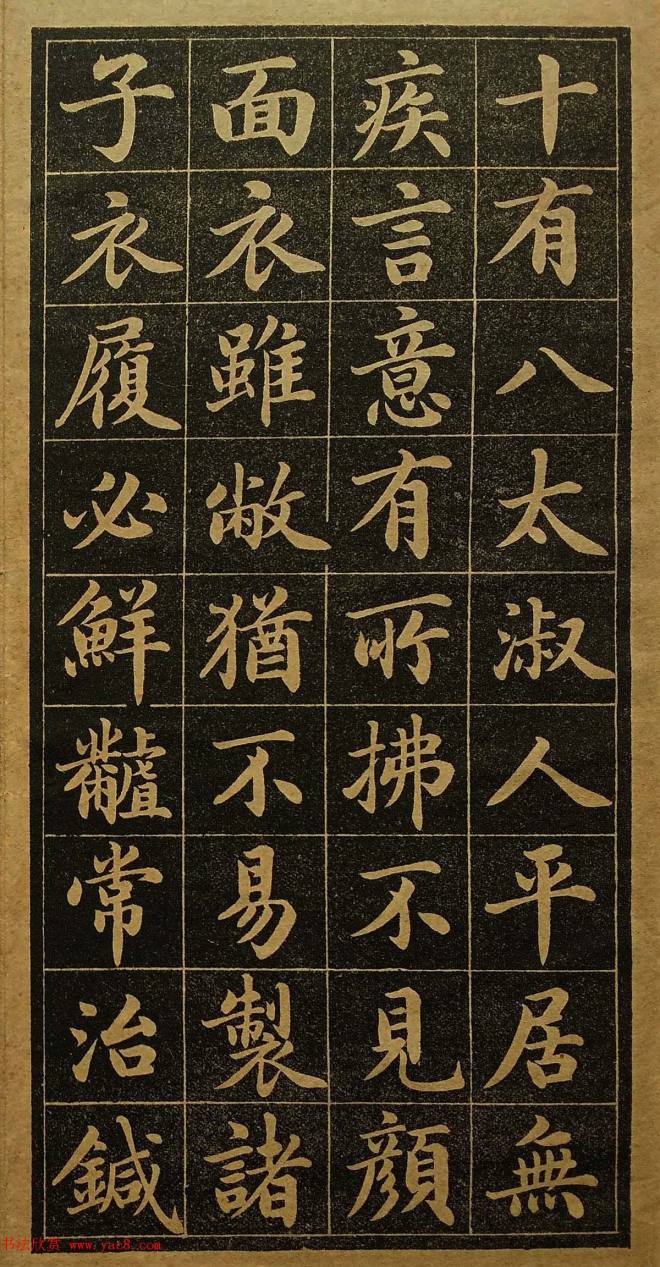 十有八太淑人平居無
疾言意有所拂不見顏
面衣雖敝猶不易製諸
子衣履必鮮齇常治鍼
书法欣赏 www.yac8.com